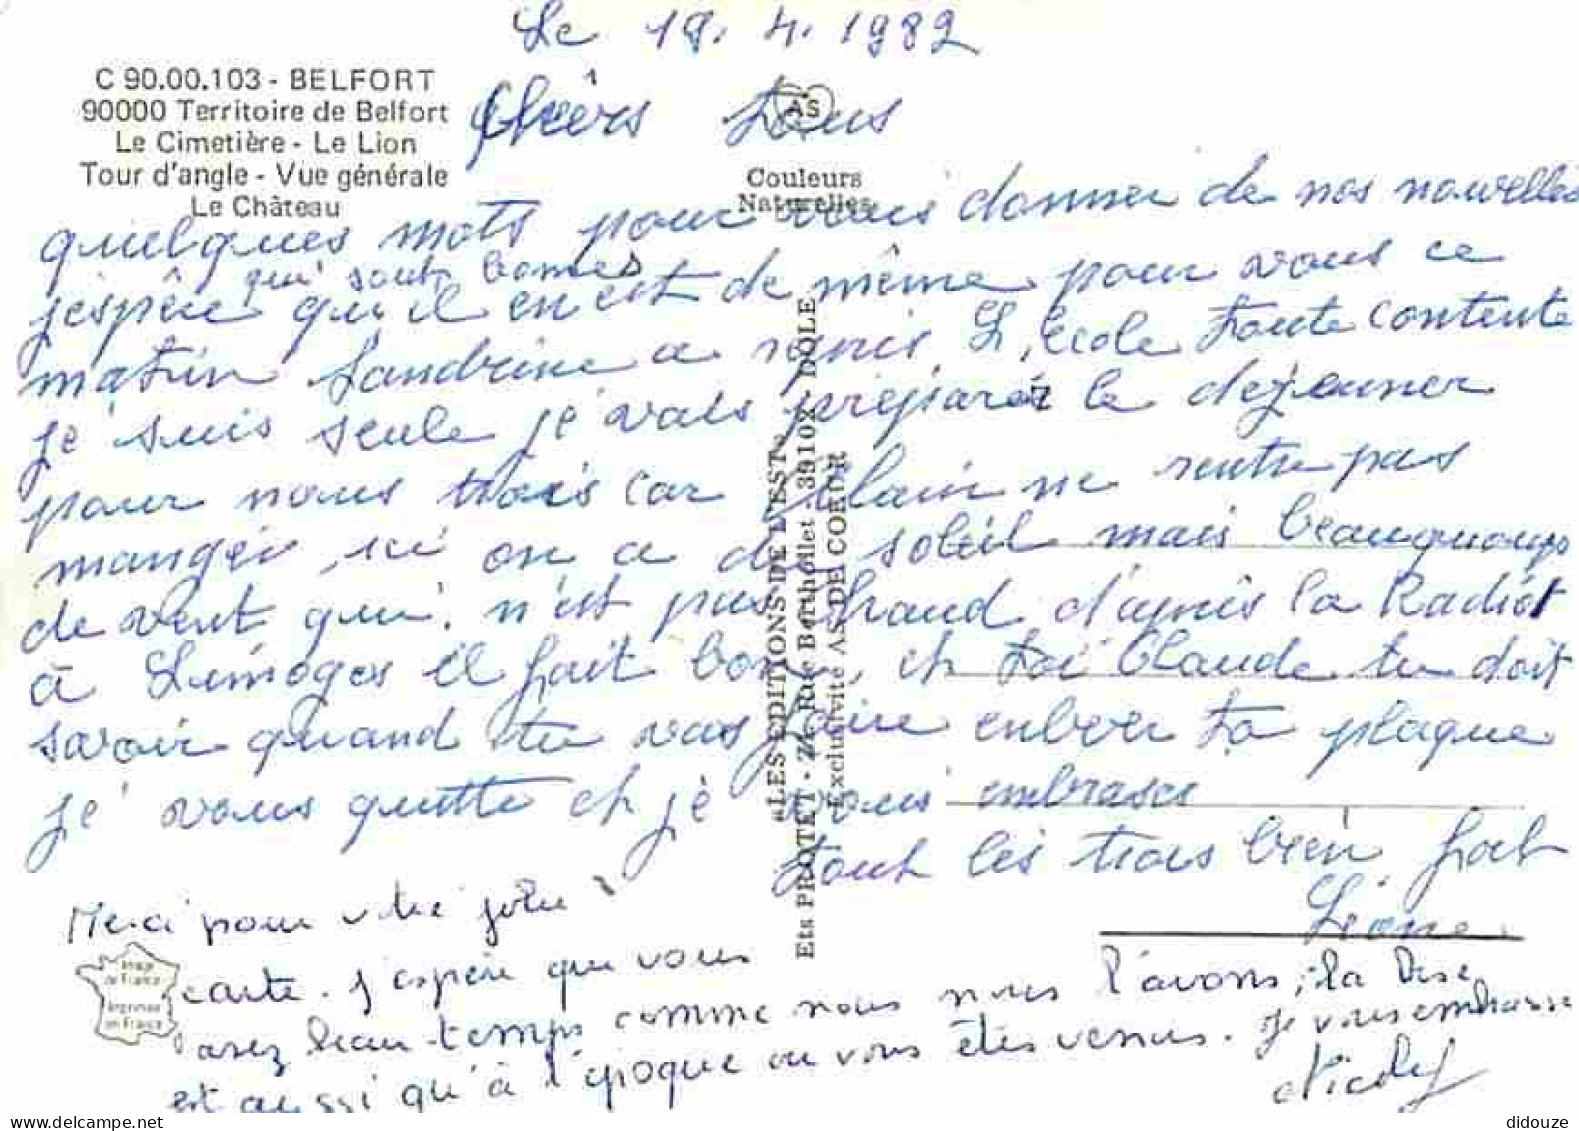 Le 19. 4. 1982
C 90.00.103 - BELFORT
90000 Territoire de Belfort
Le Cimetière - Le Lion
Tour d'angle - Vue générale
Le Château
AS
Couleurs
Naturelles
Chèrs tous
quelques mots pour vous donner de nos nouvelles
qui sont bonnes
j'espère qu'il en est de même pour vous ce
matin Sandrine a repris L'école toute contente
je suis seule je vais préparér le dejeuner
pour nous trois car Alain ne rentre pas
manger, ici on a du soleil mais beauquoups
de vent qui n'est pas chaud d'après la Radio
à Limoges il fait bon, et toi Claude tu doit
savoir quand tu vas faire enlever ta plaque
je vous quitte et je vous embrasse
tout les trois bien fort
Léone
Merci pour votre jolie
carte. J'espère que vous
avez beau temps comme nous nous l'avons, la
est aussi qu'à l'époque ou vous êtes venus. Je vous embrasse
Nicole
«LES EDITIONS DE L'EST»
Ets PROTET - Rue Berthollet - 39102 - DOLE
Exclusivité AS DE COEUR
Image
de France
Imprimée
en France
didouze